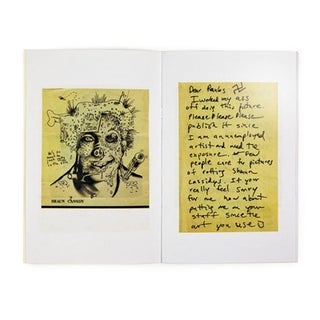 SHAUN CASSIDY
Dear Panbs
I worked my ass
off doing this picture.
Please Please Please
publish it since
I am an unemployed
artist and need the
exposure. Few
people care to pictures
of rotting Shaun
Cassidys. If you
really feel sorry
for me how about
putting me on your
staff since the
art you use